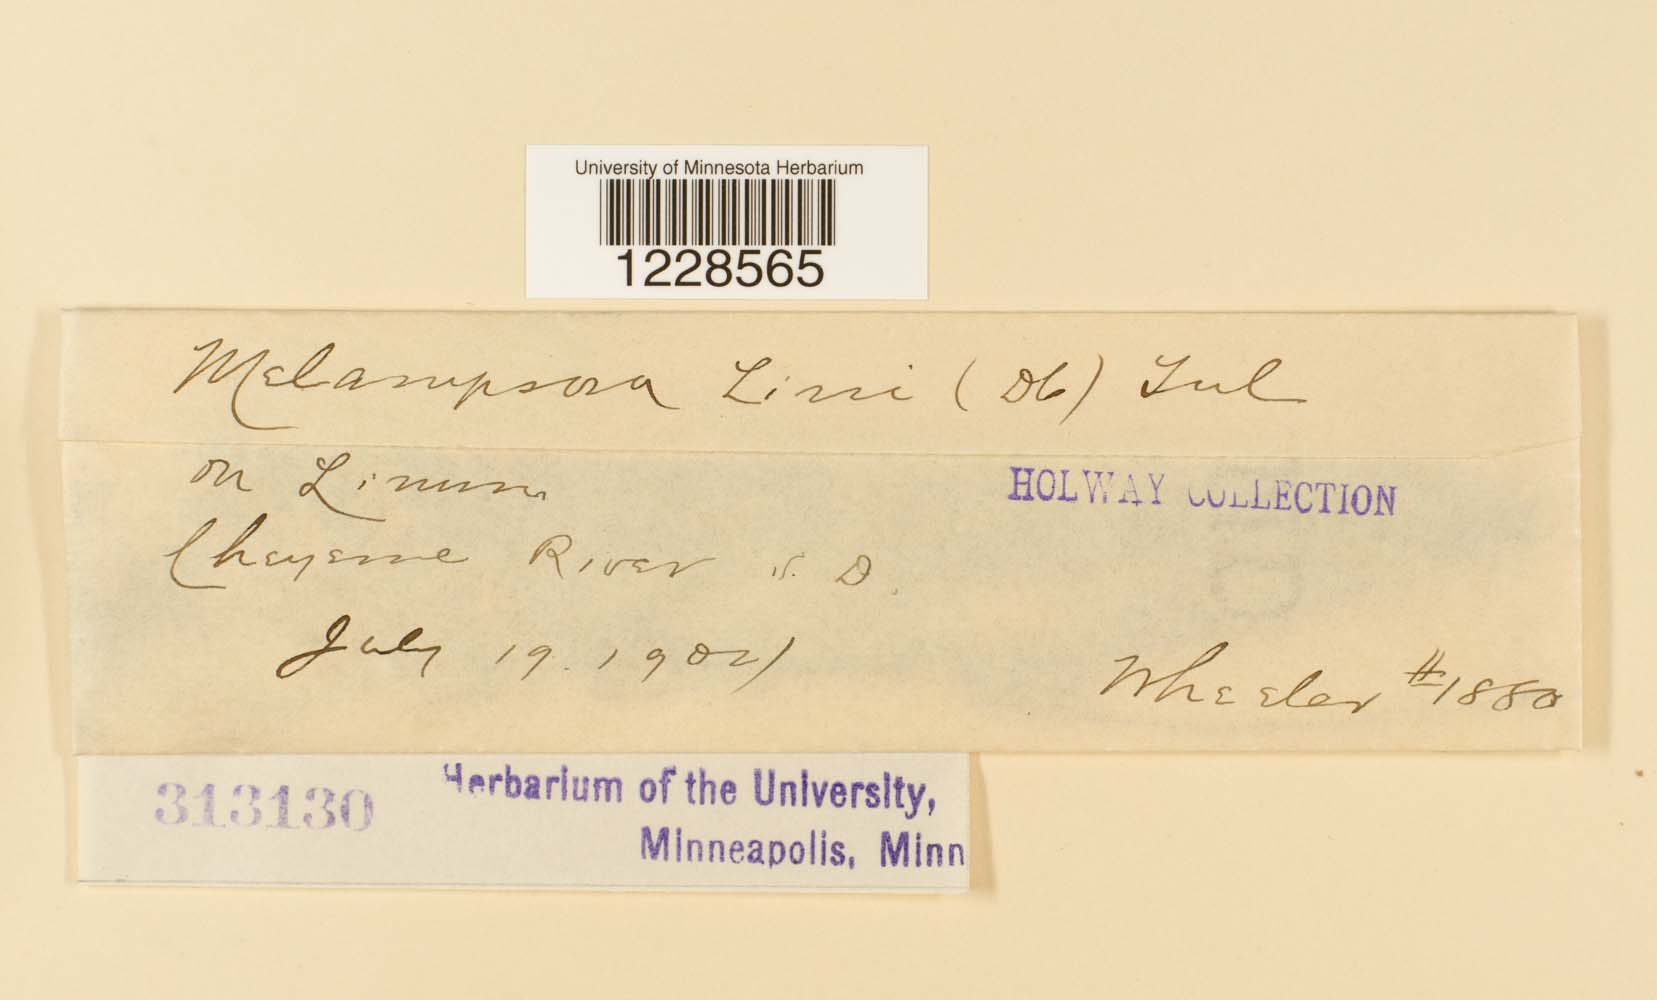 University of Minnesota Herbarium
1228565
Melampsora Lini (Db) Tul
on Linum
HOLWAY COLLECTION
Cheyenne River N. D.
July 19. 1901
Wheeler #1880
313130
Herbarium of the University,
Minneapolis, Minn